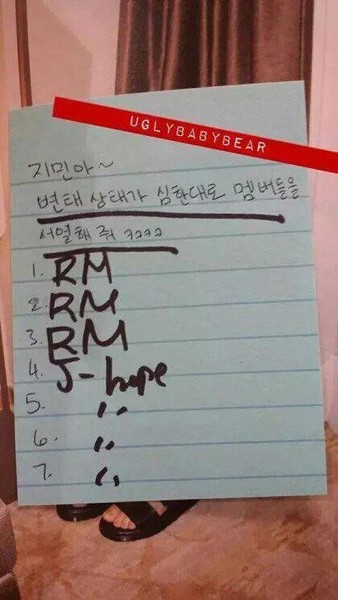 UGLYBABYBEAR
지민아~
변태 상태가 심한대로 멤버들을
서열해 줘 ㅋㅋㅋㅋ
1. RM
2. RM
3. RM
4. J-hope
5. 〃
6. 〃
7. 〃